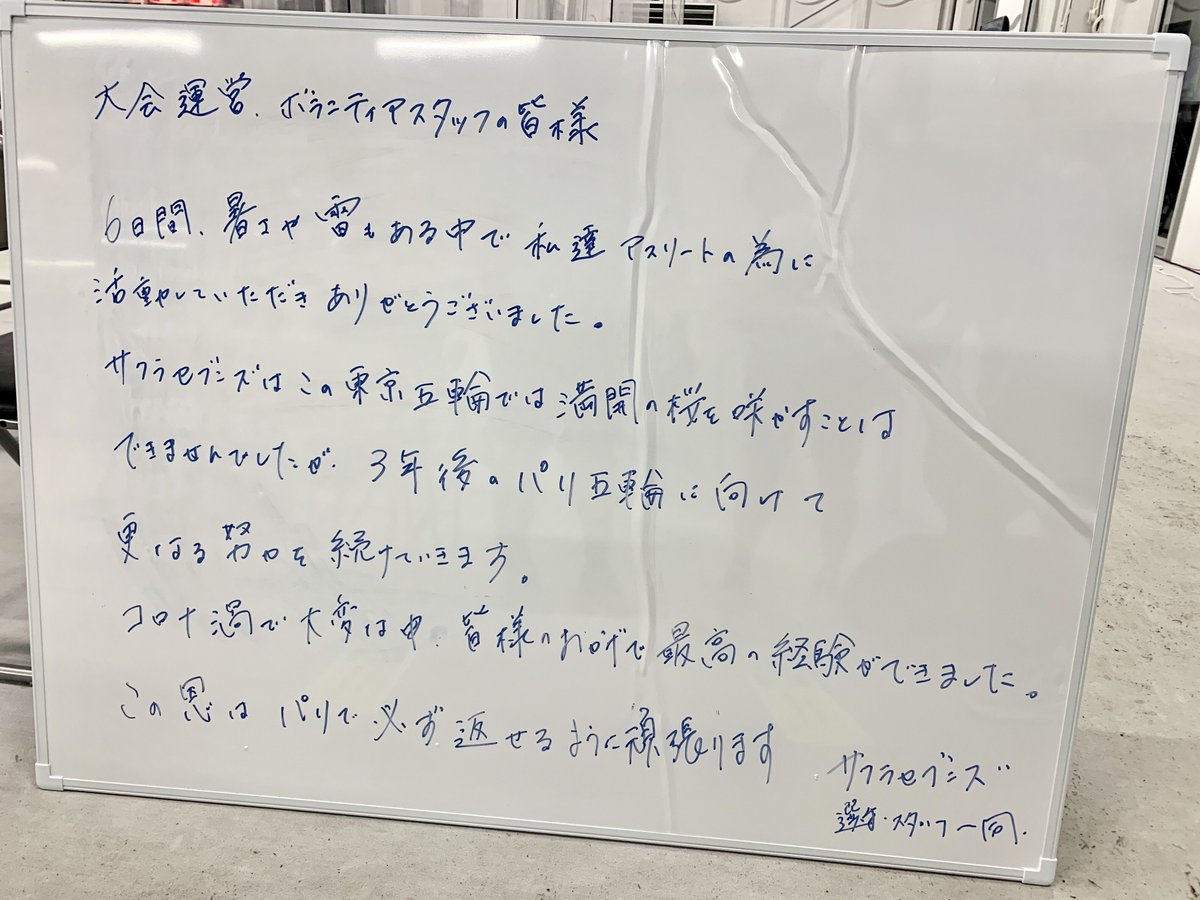 大会運営、ボランティアスタッフの皆様
6日間、暑さや雷もある中で私達アスリートの為に
活動していただきありがとうございました。
サクラセブンズはこの東京五輪では満開の桜を咲かすことは
できませんでしたが、3年後のパリ五輪に向けて
更なる努力を続けていきます。
コロナ渦で大変な中、皆様のおかげで最高の経験ができました。
この恩はパリで必ず返せるように頑張ります
サクラセブンズ
選手・スタッフ一同.